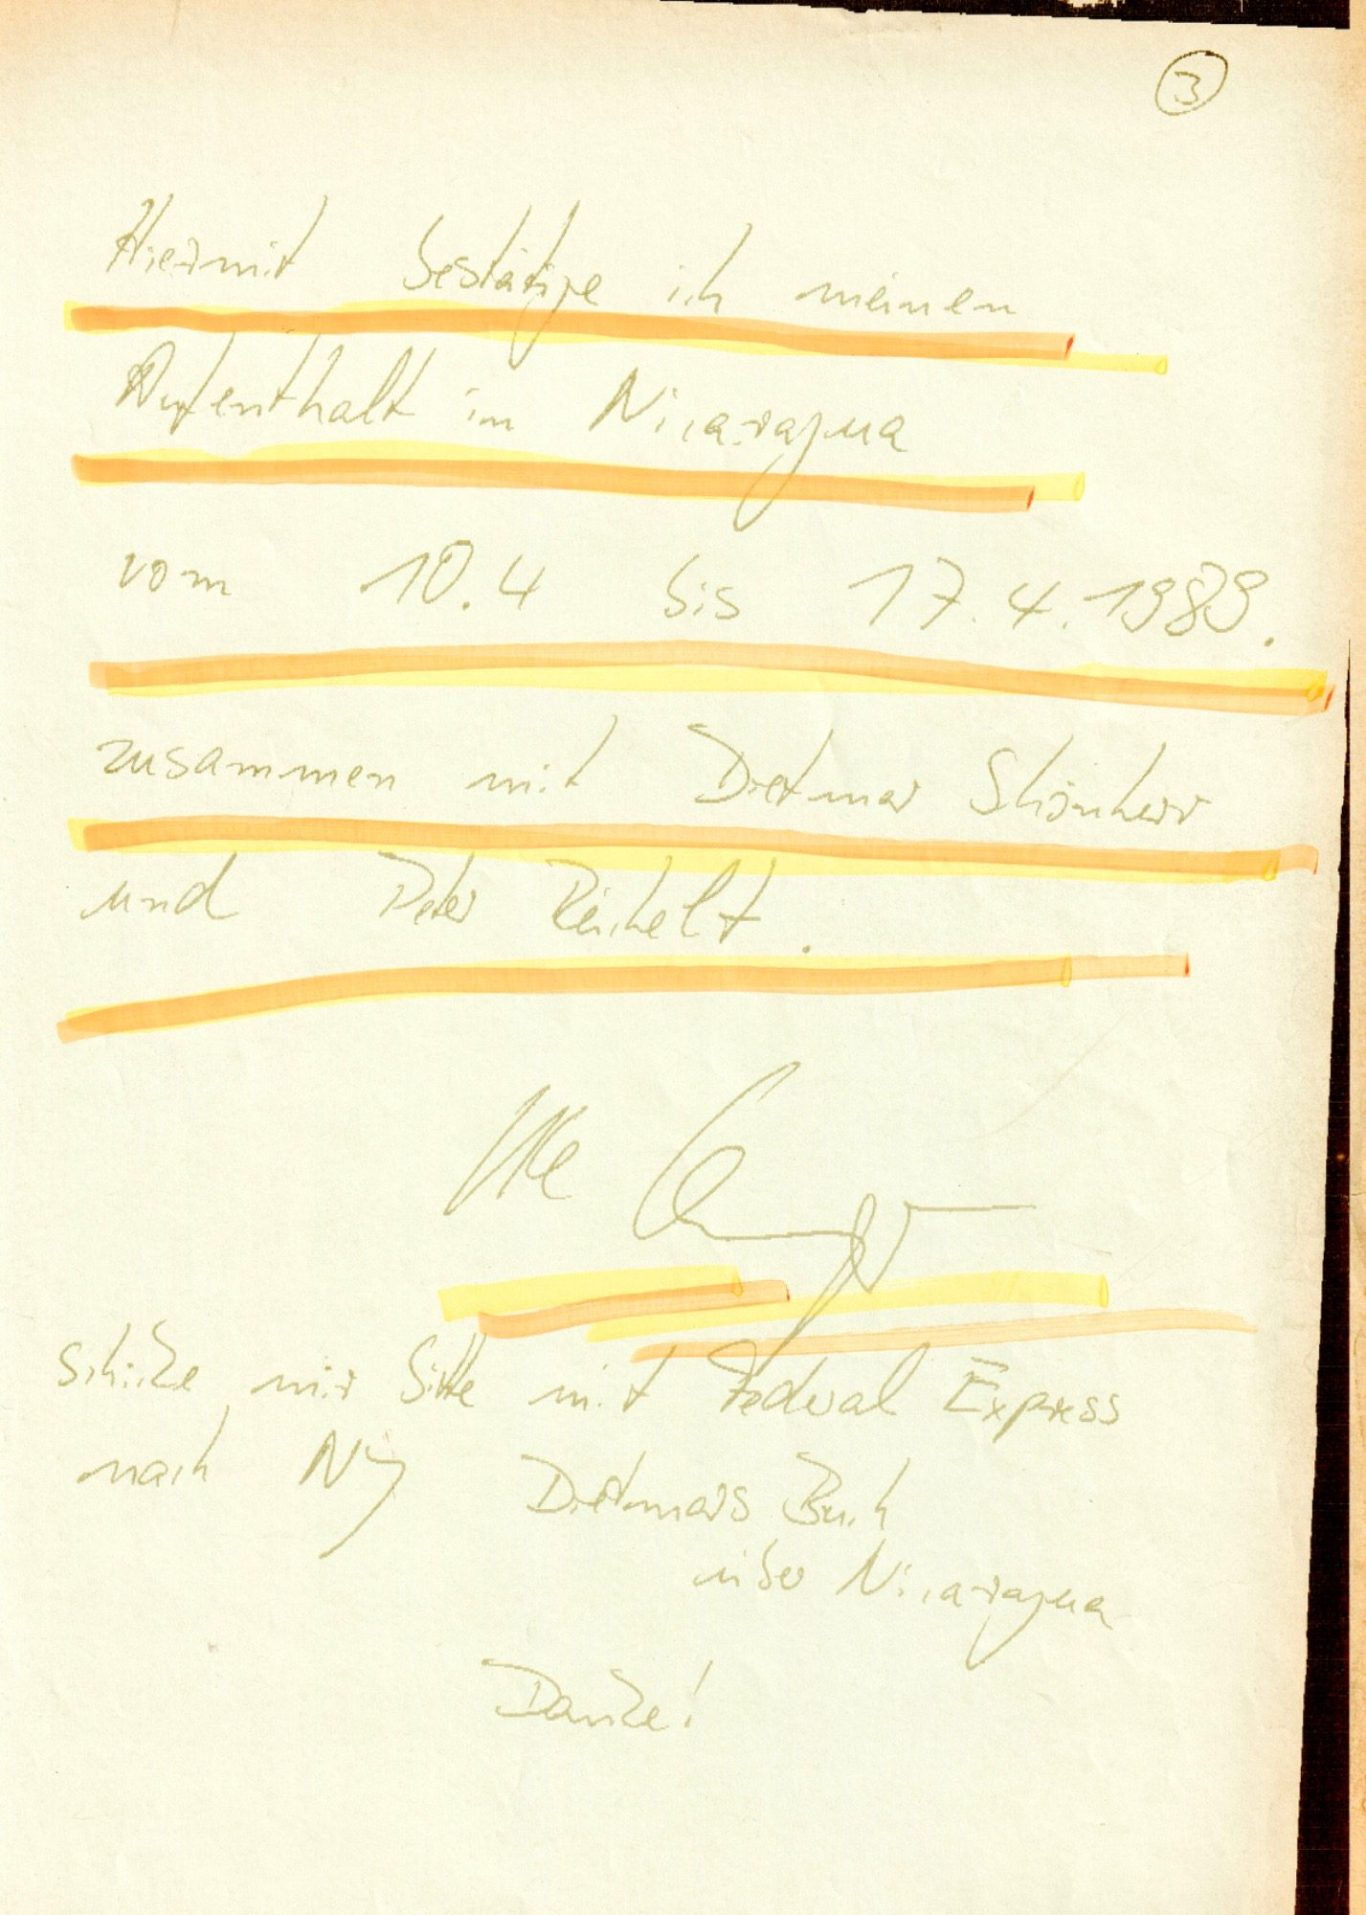 3
Hiermit bestätige ich meinen
Aufenthalt in Nicaragua
vom 10.4 bis 17.4.1989.
zusammen mit Dietmar Schönherr
und Peter Reichelt.
schicke mir bitte mit Federal Express
nach NY Dietmars Buch
über Nicaragua
Danke!